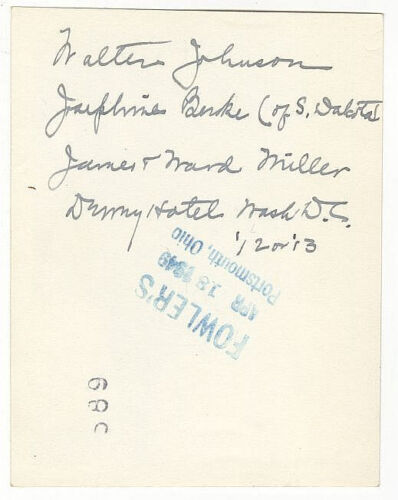 Walter Johnson
Josephine Burke (of S. Dakota)
James & Ward Miller
Denny Hotel Wash D.C.
'12 or '13
FOWLER'S
APR 18 1949
Portsmouth, Ohio
589